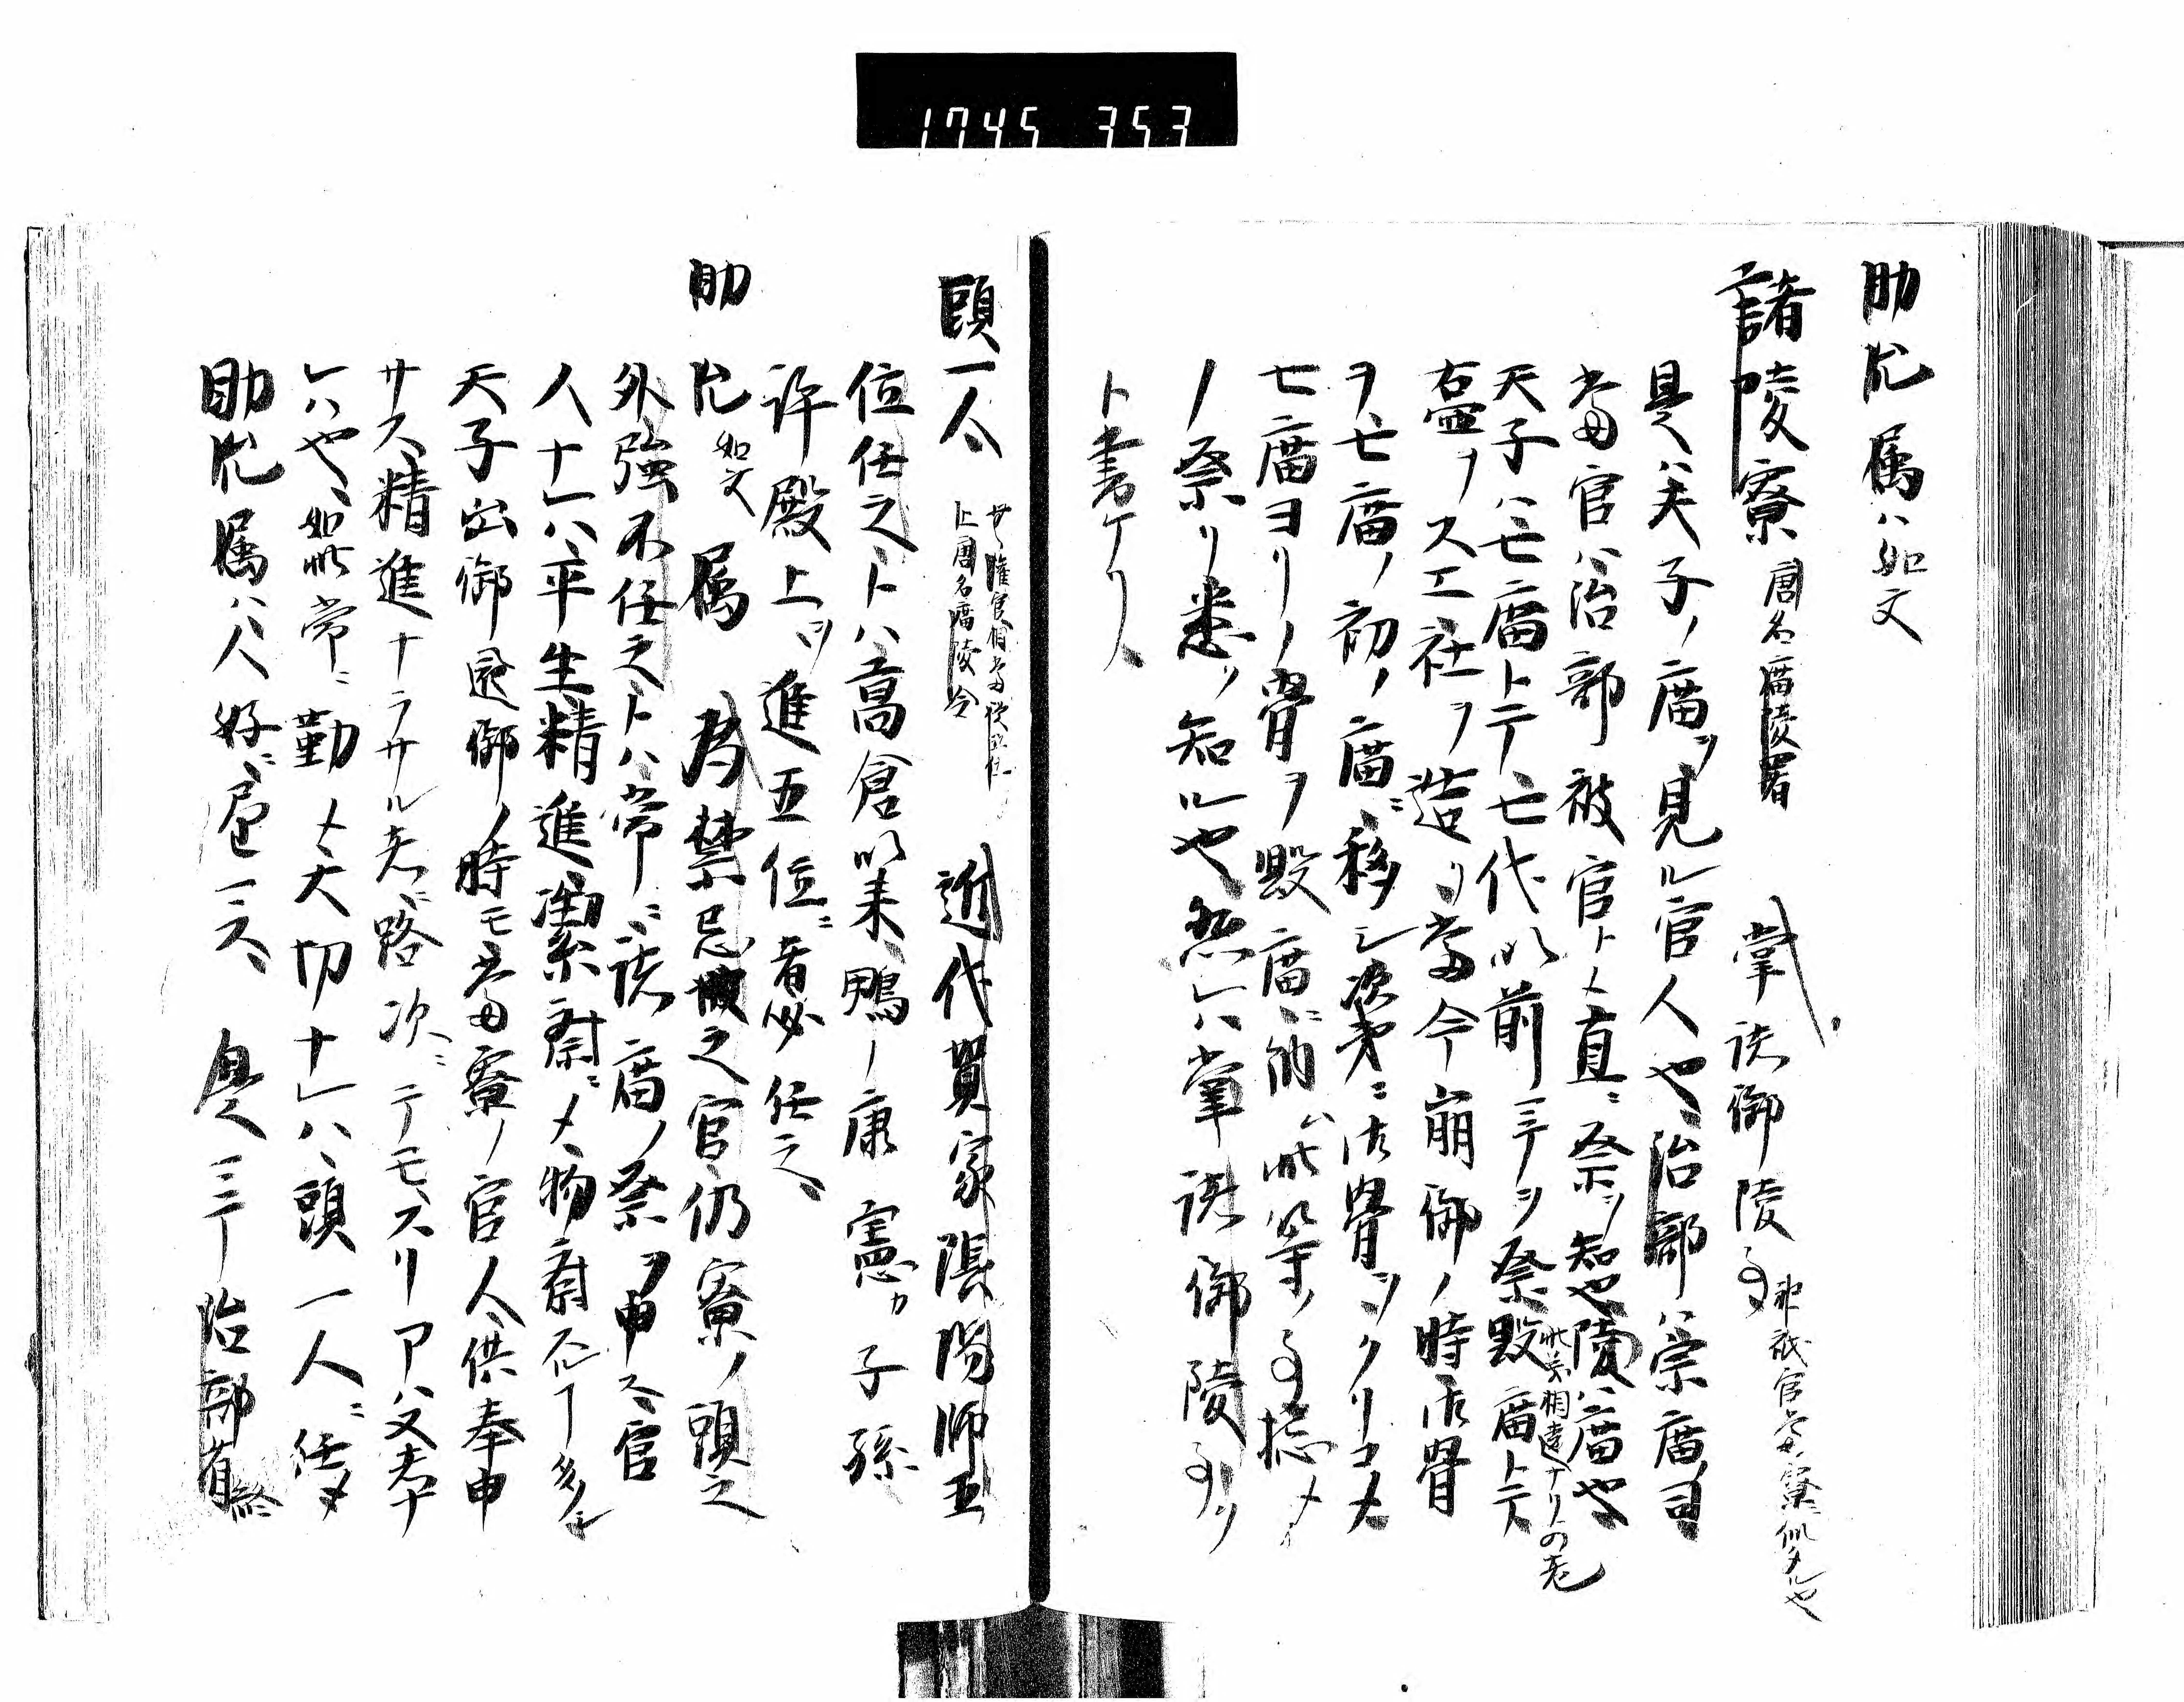 1745 353
助允 属ハ如文
諸陵寮 唐名廟陵署 掌諸御陵事 神祇官
是ハ天子ノ廟ヲ見ル官人也治部ハ宗廟ヲ司
當官ハ治部被官トメ直ニ祭ヲ知也陵ハ廟也
天子ハ七廟トテ七代以前ニテヲ祭毀廟トテ
此京相違ナリ
壺ヲスエ社ヲ造リ當今崩御ノ時御骨
ヲ七廟ノ初ノ廟ニ移シ次第ニ御骨ヲヲクリコメ
七廟ヨリノ骨ヲ毀廟ニ納ム此等ノ事捴メ
ノ祭リ悉ク知ル也然レハ掌諸御陵事ヲ
ト書ケリ
頭一人 权官相當從五位上 唐名廟陵令 近代賀家陰陽師五
位任之トハ高倉以来鴨ノ康憲カ子孫
許殿上ヲ進五位ニ者必任之
助允如文 属 為禁忌之官仍寮ノ頭之
外強不任之トハ常ニ諸廟ノ祭ヲ申ス官
人ナレハ平生精進潔齋ニメ物齋
天子出御還御ノ時モ當寮ノ官人供奉申
サス精進ナラサル者ニ路次ニテモスリアハ又者ナ
レハ也如此常ニ勤メ大切ナレハ頭一人ニ任メ
助允属ハ人好ニ 是ニテ治部省終